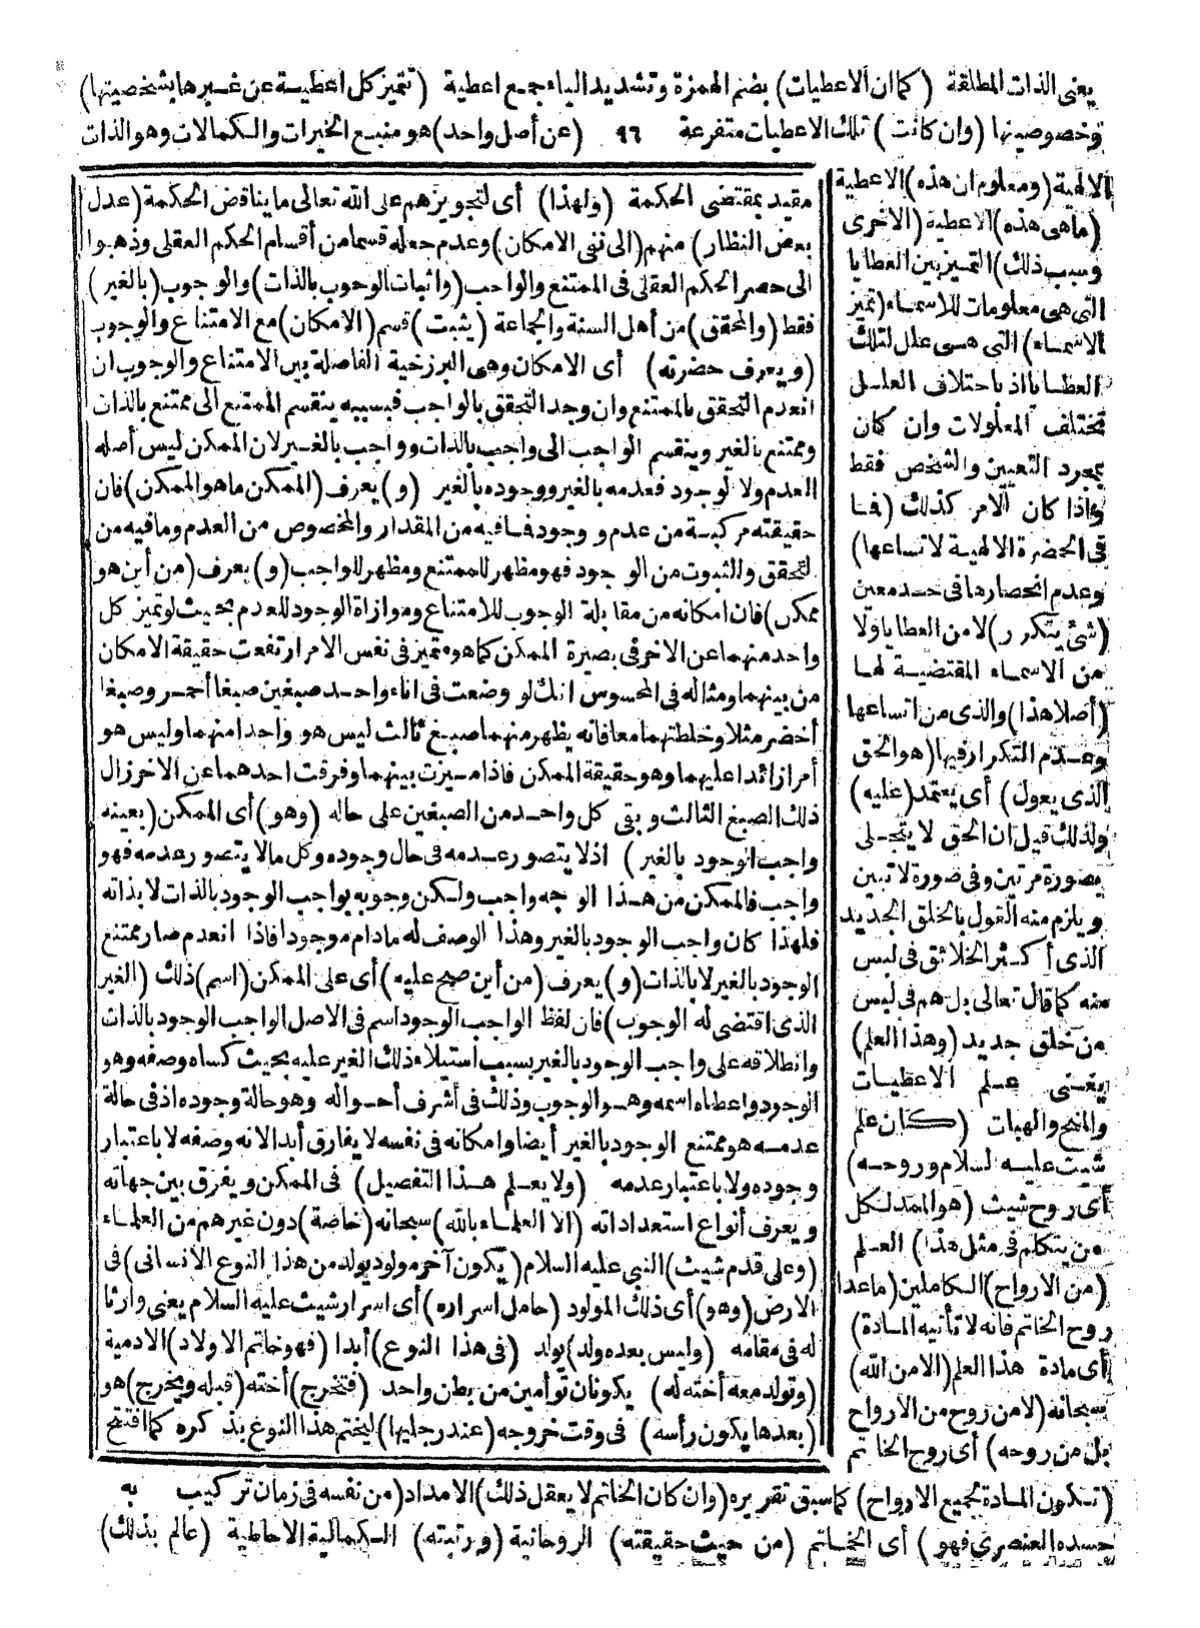 يعنى الذات المطلقة (كما ان الاعطيات) بضم الهمزة وتشديد الياء جمع اعطية (تتميز كل اعطيسة عن غيرها بشخصيتها)
وخصوصيتها (وان كانت) تلك الاعطيات متفرعة ٩٦ (عن أصل واحد) هو منبع الخيرات والكمالات وهو الذات
الالهية (ومعلوم ان هذه) الاعطية
(ماهى هذه) الاعطية (الاخرى
وسبب ذلك) التمييز بين العطايا
التى هى معلومات للاسماء (تميز
الاسماء) التى هى علل لتلك
العطايا اذ باختلاف العلل
تختلف المعلولات وان كان
بمجرد التعيين والشخص فقط
واذا كان الامر كذلك (فما
فى الحضرة الالهية لاتساعها)
وعدم انحصارها فى حد معين
(شئ يتكرر) لا من العطايا ولا
من الاسماء المقتضية لها
(أصلا هذا) والذى من اتساعها
وعدم التكرار فيها (هو الحق
الذى يعول) أى يعتمد (عليه)
ولذلك قيل ان الحق لا يتجلى
بصورة مرتين وفى صورة لاثنين
ويلزم منه القول بالخلق الجديد
الذى أكثر الخلائق فى لبس
منه كما قال تعالى بل هم فى لبس
من خلق جديد (وهذا العلم)
يعنى علم الاعطيات
والمنح والهبات (كان علم
شيث عليه السلام وروحه)
أى روح شيث (هو الممد لكل
من يتكلم فى مثل هذا) العلم
(من الارواح) الكاملين (ماعدا
روح الخاتم فانه لا تأتيه المادة)
أى مادة هذا العلم (الا من الله)
سبحانه (لا من روح من الارواح
بل من روحه) أى روح الخاتم
(تكون المادة لجميع الارواح) كما سبق تقريره (وان كان الخاتم لا يعقل ذلك) الامداد (من نفسه فى زمان تركيب به
جسده العنصرى فهو) أى الخاتم (من حيث حقيقته) الروحانية (ورتبته) الكمالية الاحاطية (عالم بذلك)
مقيد بمقتضى الحكمة (ولهذا) أى لتجويزهم على الله تعالى ما يناقض الحكمة (عدل
بعض النظار) منهم (الى نفى الامكان) وعدم جعله قسما من أقسام الحكم العقلى وذهبوا
الى حصر الحكم العقلى فى الممتنع والواجب (واثبات الوجوب بالذات) والوجوب (بالغير)
فقط (والمحقق) من أهل السنة والجماعة (يثبت) قسم (الامكان) مع الامتناع والوجوب
(ويعرف حضرته) أى الامكان وهى البرزخية الفاصلة بين الامتناع والوجوب ان
انعدم التحقق بالممتنع وان وجد التحقق بالواجب فبسببه ينقسم الممتنع الى ممتنع بالذات
وممتنع بالغير وينقسم الواجب الى واجب بالذات وواجب بالغير لان الممكن ليس أصله
العدم ولا الوجود فعدمه بالغير ووجوده بالغير (و) يعرف (الممكن ماهو الممكن) فان
حقيقته مركبة من عدم ووجود فما فيه من المقدار والمخصوص من العدم وما فيه من
التحقق والثبوت من الوجود فهو مظهر للممتنع ومظهر للواجب (و) يعرف (من أين هو
ممكن) فان امكانه من مقابلة الوجوب للامتناع وموازاة الوجود للعدم بحيث لو تميز كل
واحد منهما عن الاخر فى بصيرة الممكن كما هو متميز فى نفس الامر ارتفعت حقيقة الامكان
من بينهما ومثاله فى المحسوس انك لو وضعت فى اناء واحد صبغين صبغا أحمر وصبغا
أخضر مثلا وخلطتهما معا فانه يظهر منهما صبغ ثالث ليس هو واحدا منهما وليس هو
أمرا زائدا عليهما وهو حقيقة الممكن فاذا ميزت بينهما وفرقت احدهما عن الاخر زال
ذلك الصبغ الثالث وبقى كل واحد من الصبغين على حاله (وهو) أى الممكن (بعينه
واجب الوجود بالغير) اذ لا يتصور عدمه فى حال وجوده وكل ما لا يتصور عدمه فهو
واجب فالممكن من هذا الوجه واجب ولكن وجوبه بواجب الوجود بالذات لا بذاته
فلهذا كان واجب الوجود بالغير وهذا الوصف له مادام موجودا فاذا انعدم صار ممتنع
الوجود بالغير لا بالذات (و) يعرف (من أين صح عليه) أى على الممكن (اسم) ذلك (الغير
الذى اقتضى له الوجوب) فان لفظ الواجب الوجود اسم فى الاصل الواجب الوجود بالذات
وانطلاقه على واجب الوجود بالغير بسبب استيلاء ذلك الغير عليه بحيث كساه وصفه وهو
الوجود واعطاه اسمه وهو الوجوب وذلك فى أشرف أحواله وهو حالة وجوده اذ فى حالة
عدمه هو ممتنع الوجود بالغير أيضا وامكانه فى نفسه لا يفارق أبدا لانه وصفه لا باعتبار
وجوده ولا باعتبار عدمه (ولا يعلم هذا التفصيل) فى الممكن ويفرق بين جهاته
ويعرف أنواع استعداداته (الا العلماء بالله) سبحانه (خاصة) دون غيرهم من العلماء
(وعلى قدم شيث) النبى عليه السلام (يكون آخر مولود يولد من هذا النوع الانسانى) فى
الارض (وهو) أى ذلك المولود (حامل اسراره) أى اسرار شيث عليه السلام يعنى وارثا
له فى مقامه (وليس بعده ولد) يولد (فى هذا النوع) أبدا (فهو خاتم الاولاد) الادمية
(وتولد معه أخته له) يكونان توأمين من بطن واحد (فتخرج) أخته (قبله ويخرج) هو
(بعدها يكون رأسه) فى وقت خروجه (عند رجليها) ليختم هذا النوع بذكره كما افتتح